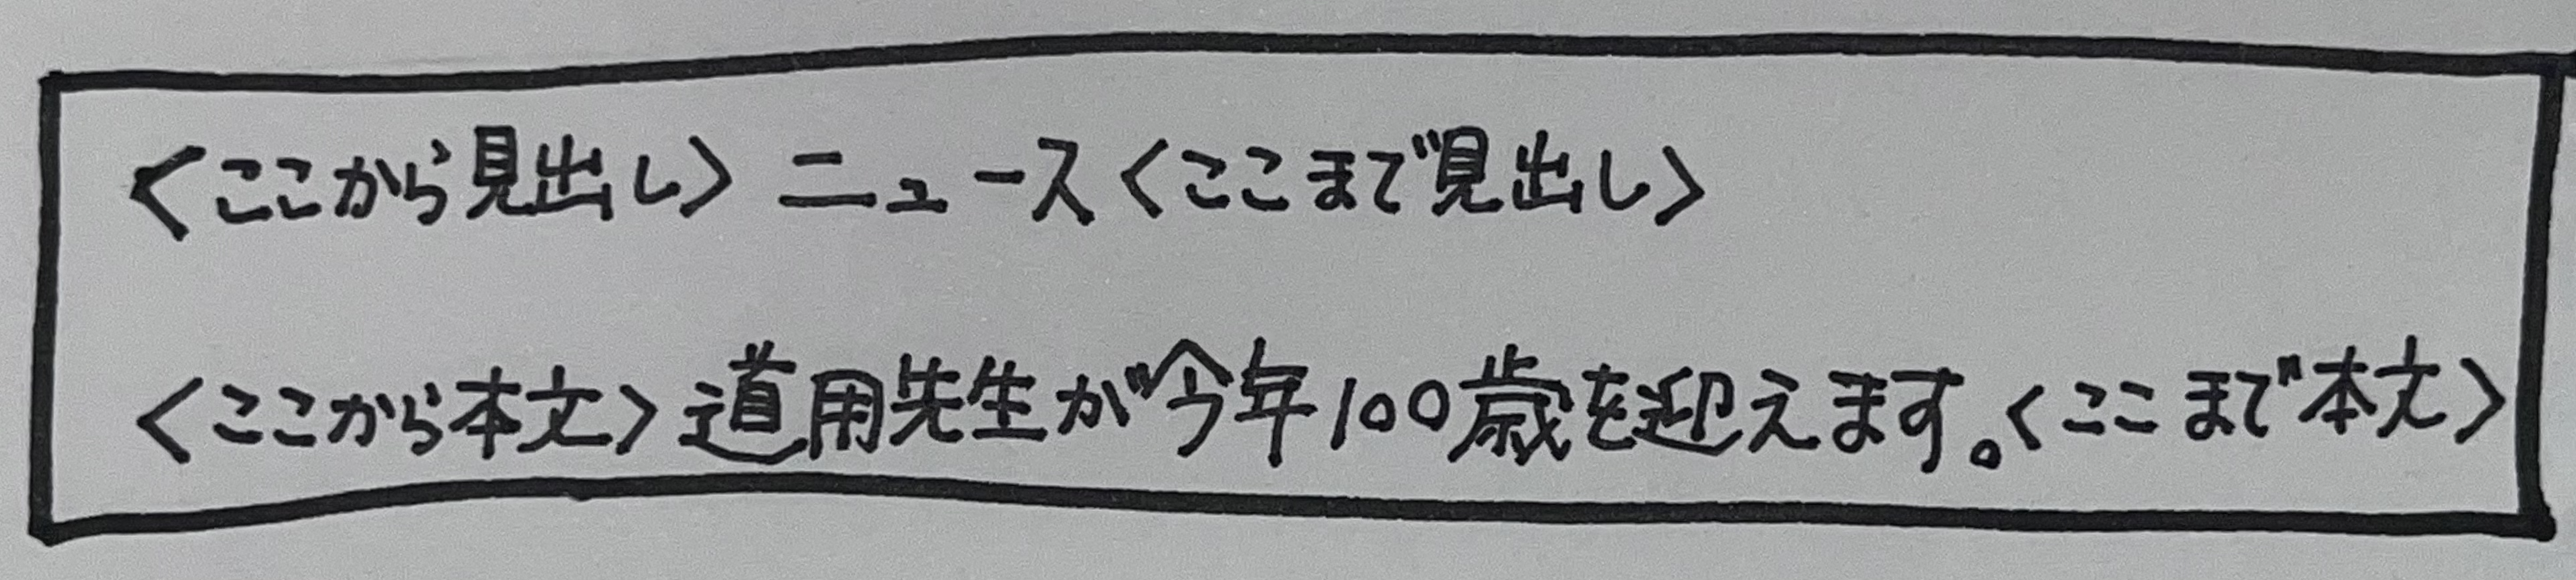 <ここから見出し> ニュース<ここまで見出し>
<ここから本文>道用先生が今年100歳を迎えます。<ここまで本文>